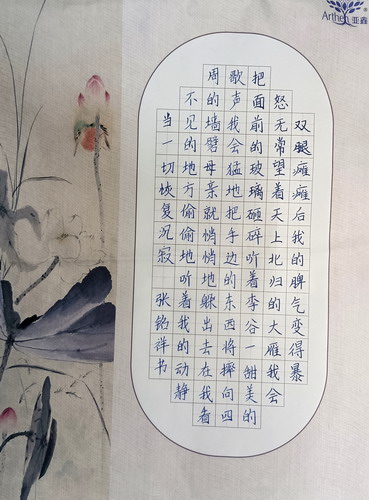 Arthen 亚鑫
双腿瘫瘫后我的脾气变得暴
怒无常望着天上北归的大雁我会
把面前的玻璃砸碎听着李谷一甜美的
歌声我会猛地把手边的东西将摔向四
周的墙劈母亲就悄悄地躲出去在我看
不见的地方偷偷地听着我的动静
当一切恢复沉寂
张铭祥书